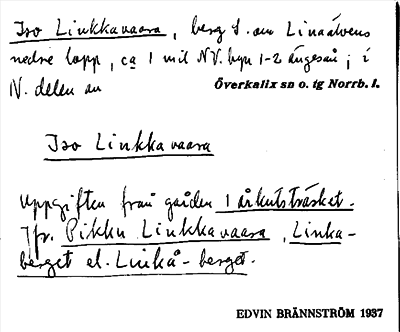 Iso Linkkavaara, berg S. om Linaälvens
nedre lopp, ca 1 mil NV. byn 1-2 ängesån; i
N. delen av Överkalix sn o. tg Norrb. l.
Iso Linkkavaara
Uppgiften från gården 1 årkutsträsket.
Jfr. Pikku Linkkavaara, Linka-
berget el. Linkå-berget.
EDVIN BRÄNNSTRÖM 1937